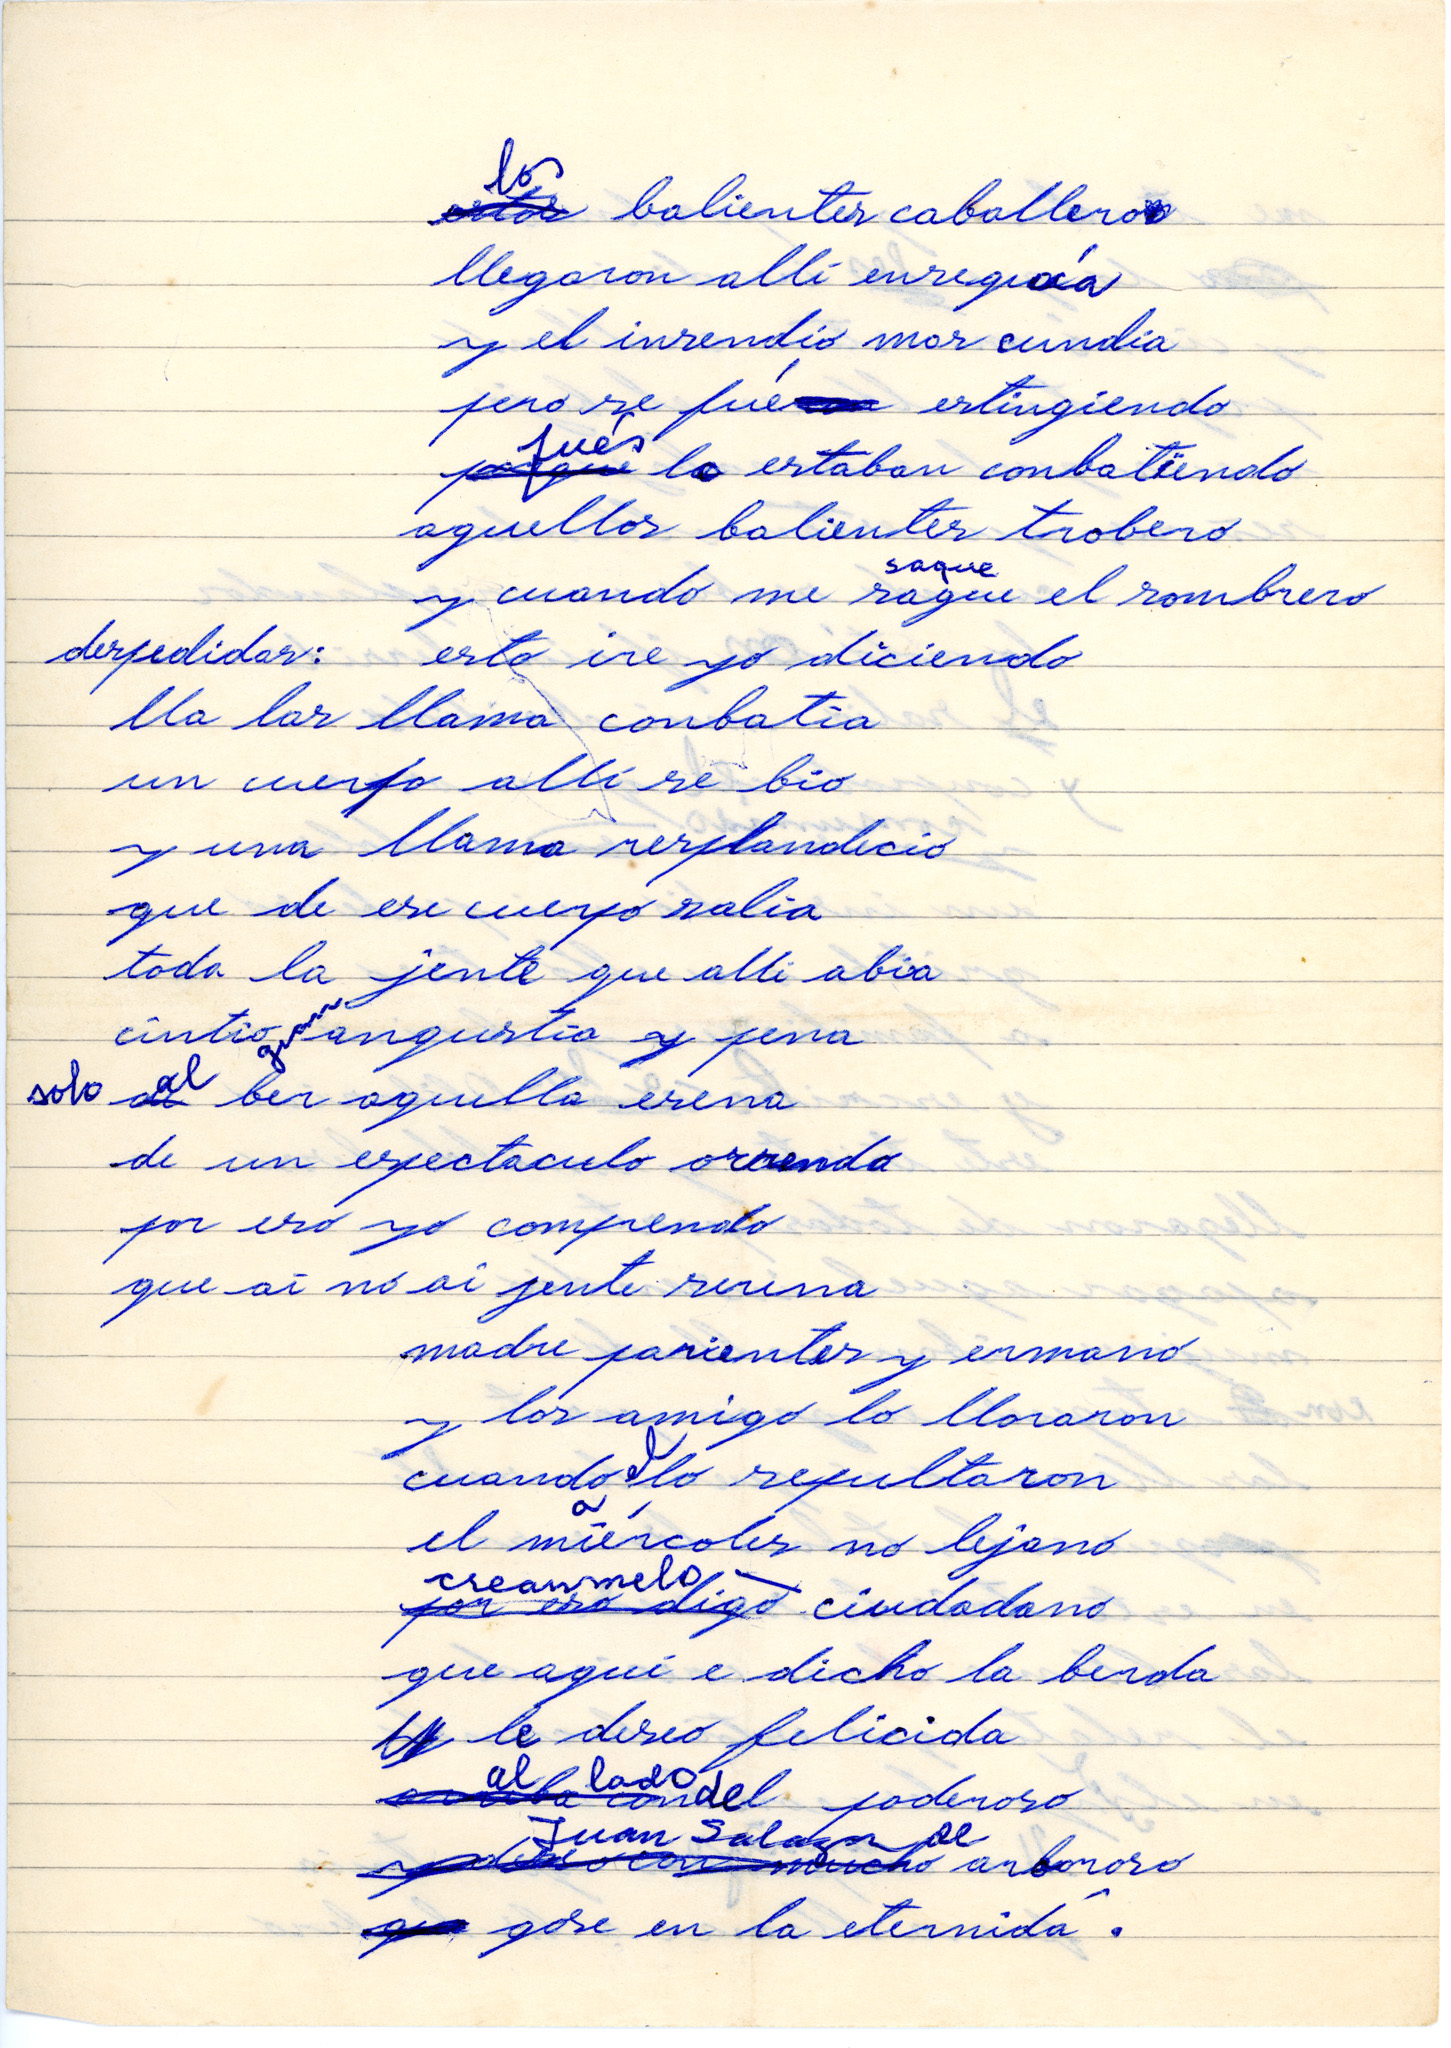 los
estos balientes caballero
llegaron allí enseguía
y el insendio mas cundia
pero se fué estingiendo
pués
porque lo estaban conbatiendo
aquellos balientes trobero
saque
y cuando me saque el sombrero
despedidas: esto ire yo diciendo
lla las llama conbatia
un cuerpo allí se bio
y una llama resplandecio
que de ese cuerpo salia
toda la jente que alli abia
cintio gran angustia y pena
solo al ber aquella esena
de un espectaculo orrendo
por eso yo comprendo
que ai no ai jente serena
madre parientes y ermano
y los amigo lo lloraron
cuando el lo sepultaron
el miércoles no lejano
creanmelo
por eso digo ciudadano
que aquí e dicho la berda
le deseo felicida
al lado del poderoso
Juan Salazar al
y deseo con mucho arboroso
que gose en la eternidá.